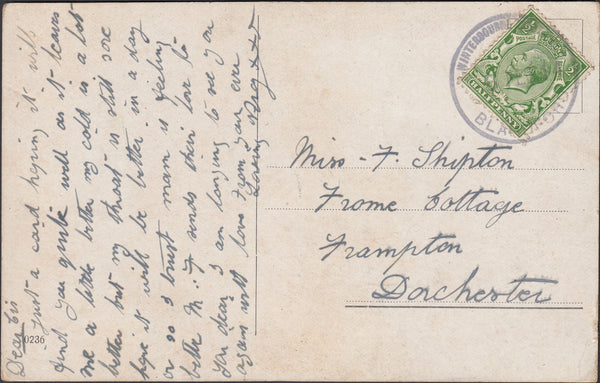 Dear Sis
Just a card hoping it will
find you quite well as it leaves
me a little better my cold is a lot
better but my throat is still sore
hope it will be better in a day
or so I trust mam is feeling
better M. & F sends their love to
you dear I am longing to see you
again with love From your ever
loving xxx
0236
WINTERBOURNE
BLA
HALFPENNY
POSTAGE
Miss F. Shipton
Frome Cottage
Frampton
Dorchester